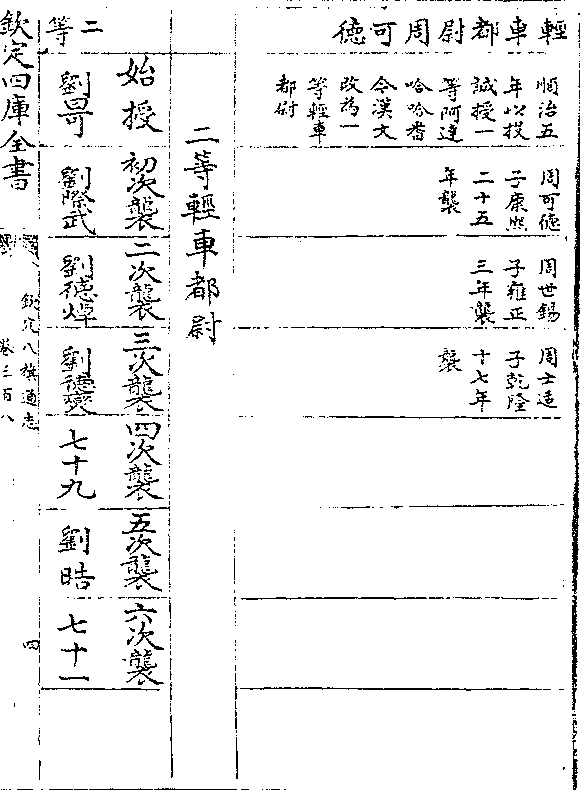 輕車都尉周可德
順治五
年以投
誠授一
等阿達
哈哈番
今漢文
改為一
等輕車
都尉
周可德
子康熙
二十五
年襲
周世錫
子雍正
三年襲
周士造
子乾隆
十七年
襲
二等輕車都尉
二等
始授
初次襲
二次襲
三次襲
四次襲
五次襲
六次襲
劉
劉際武
劉德焯
劉德燮
七十九
劉晧
七十一
欽定四庫全書
欽定八旗通志
卷三百八
四